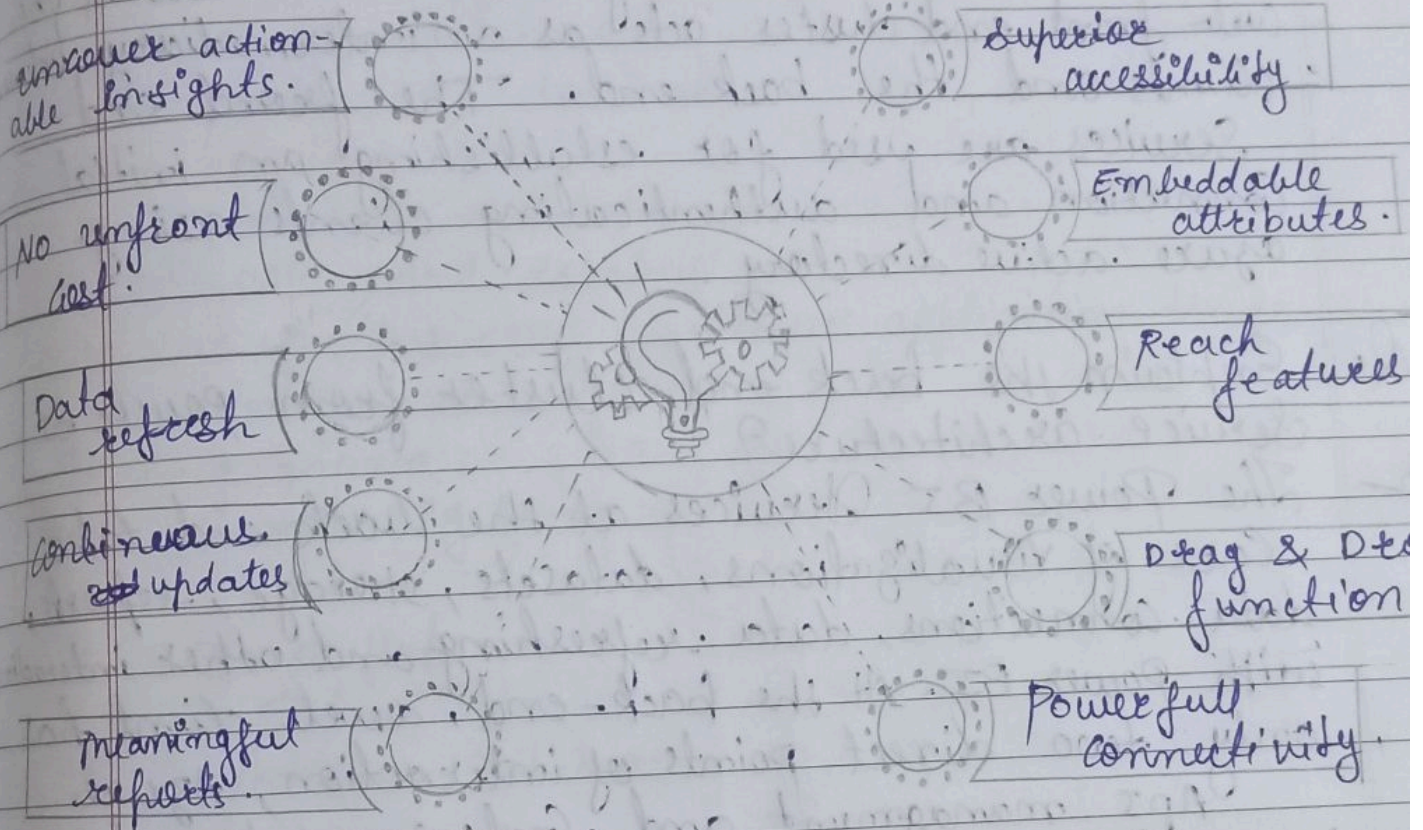 uncover action-
able insights.
No upfront
cost.
Data
refresh
Continuous
updates
Meaningful
reports.
Superior
accessibility.
Embeddable
attributes.
Reach
features
Drag &
function
Powerfull
connectivity.